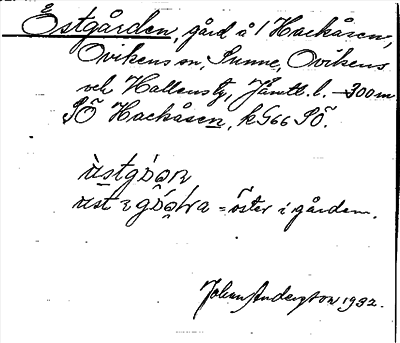 Östgården, gård å 1 Hackåsen,
Ovikens sn, Sunne, Ovikens
och Hallens tg, Jämtl. l. — 300 m
SÖ Hackåsen, k G66 SÖ.
= öster i gården.
Johan Anderson 1932.